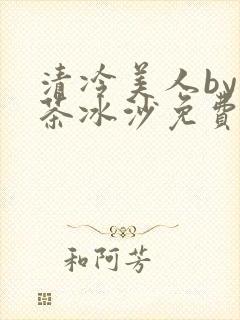 清冷美人by
茶冰沙免費
和阿芳